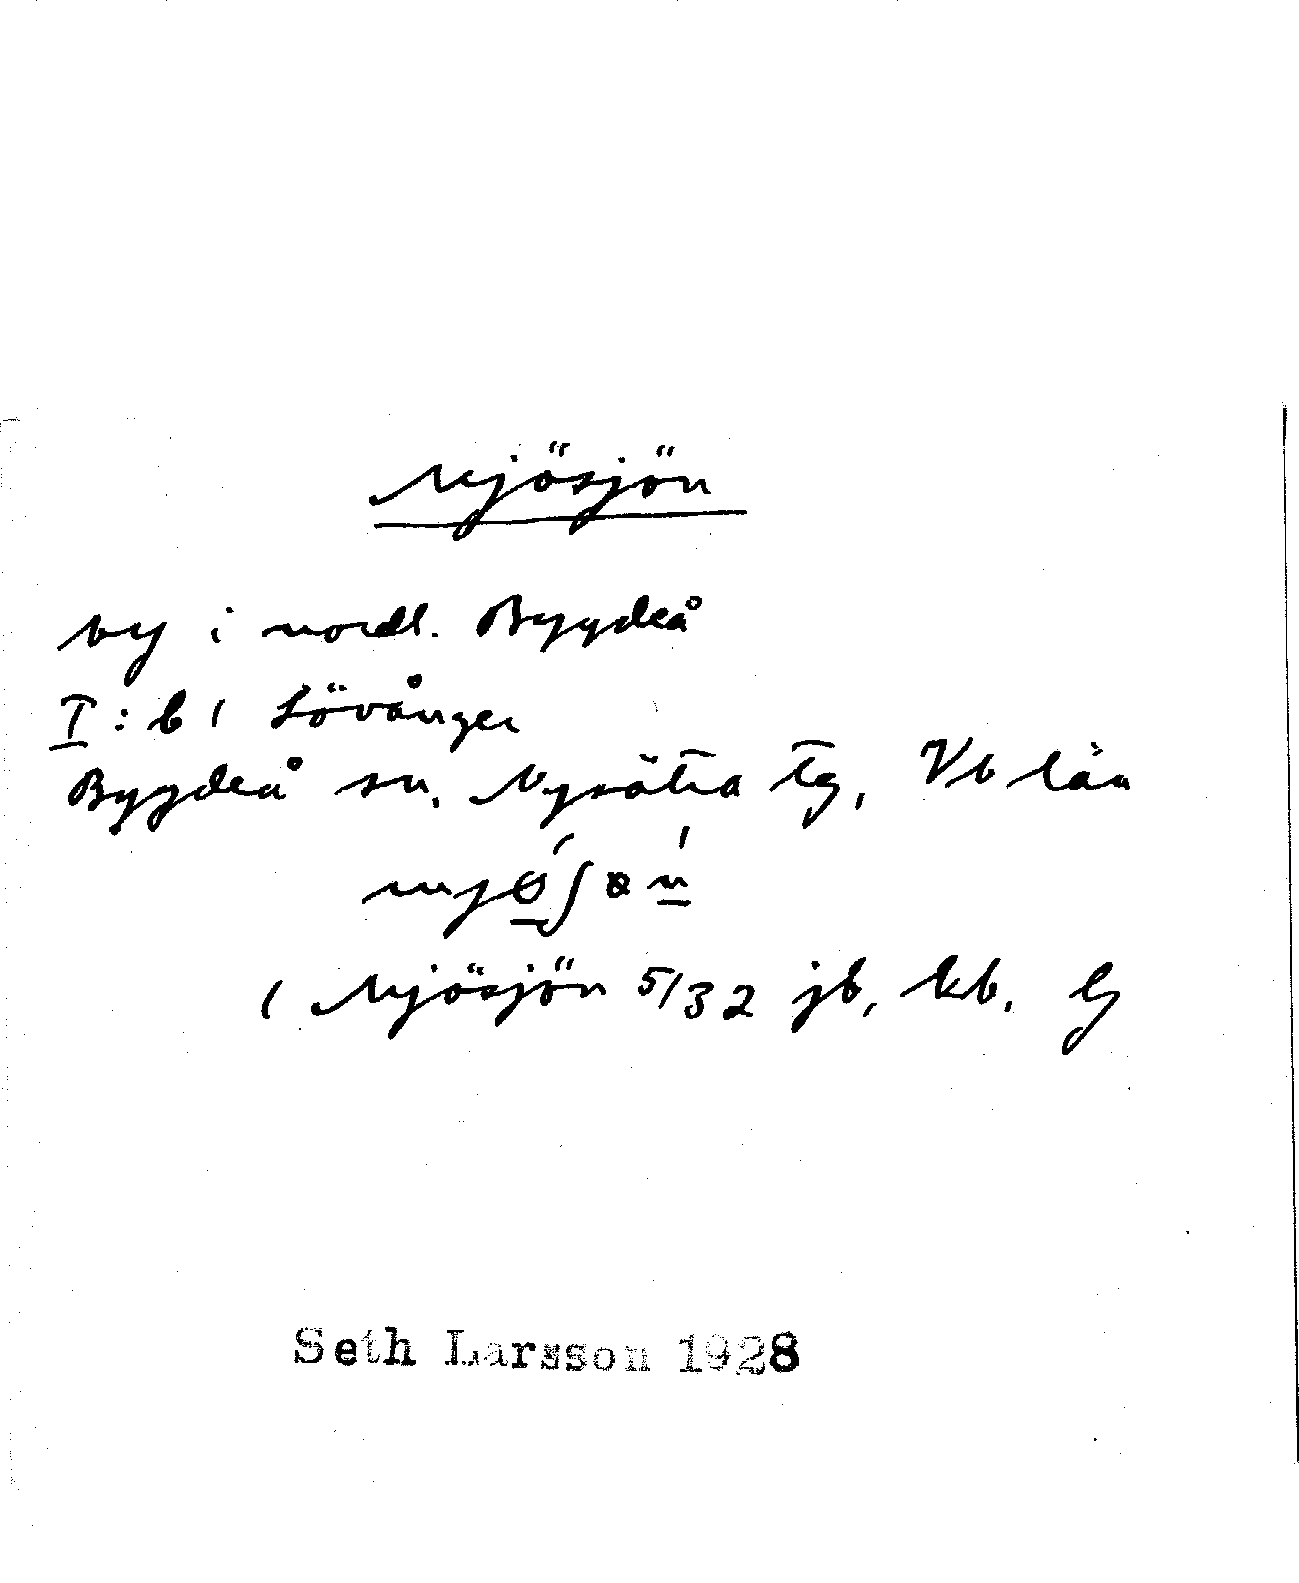 Mjösjön
by i nordl. Bygdeå
I: b / Lövånger
Bygdeå sn, Nysätra tg, Vb län
Mjösjön 5/32 jb, kb.
Seth Larsson 1928